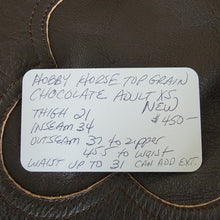 HOBBY HORSE TOP GRAIN
CHOCOLATE ADULT XS
NEW
THIGH 21 $450-
INSEAM 34
OUTSEAM 37 to zipper
45.5 to WAIST
WAIST UP TO 31 CAN ADD EXT.